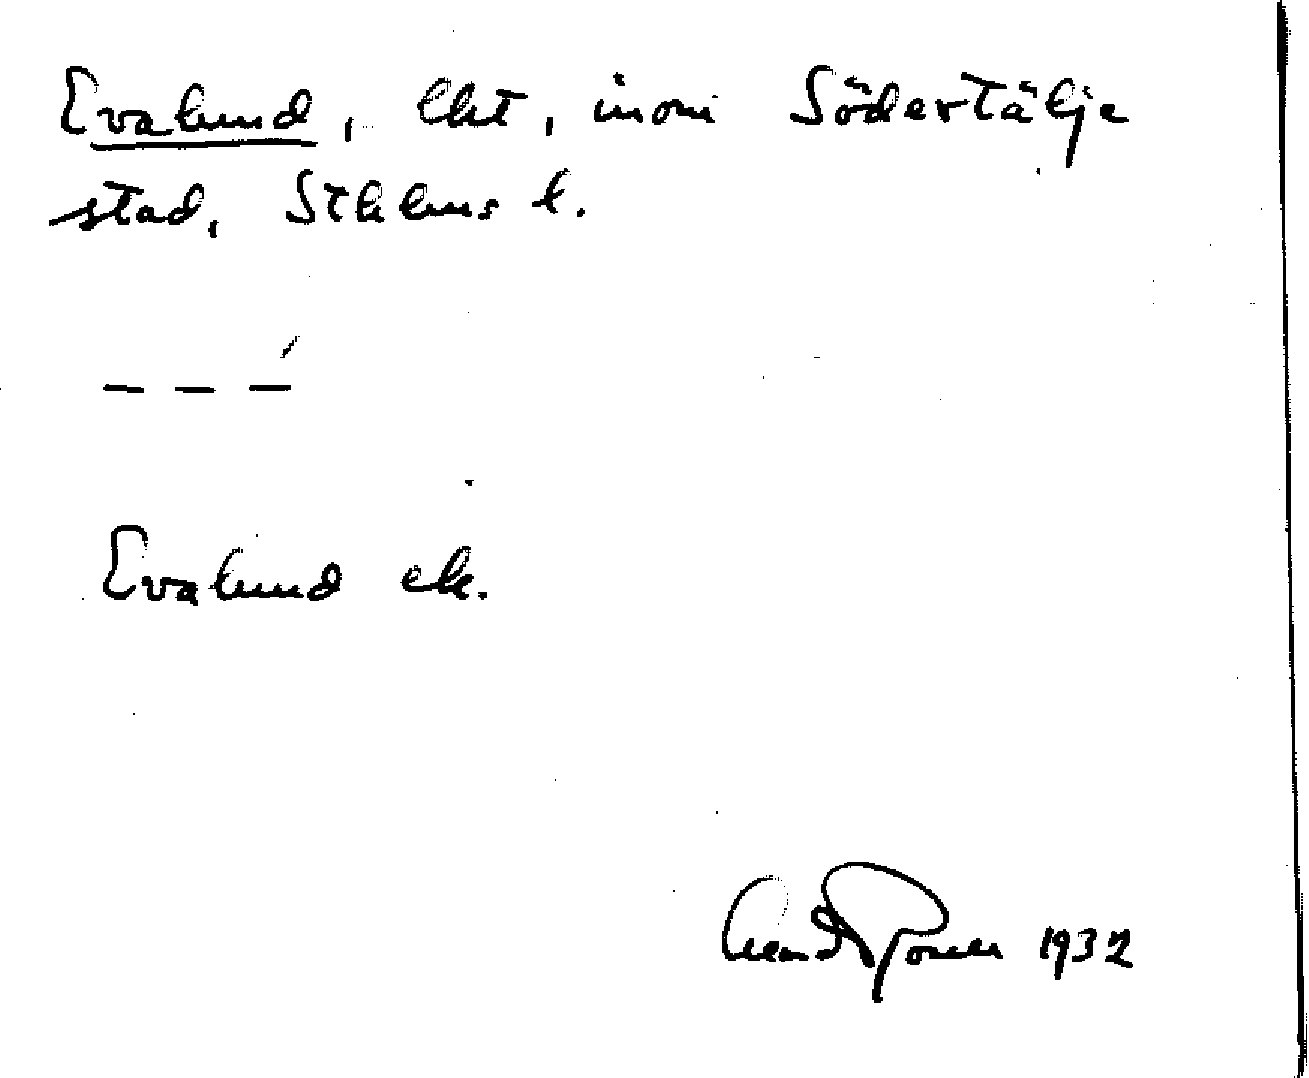 Evalund, lht, inom Södertälje
stad, Sthlms l.
— — —
Evalund ek.
1932